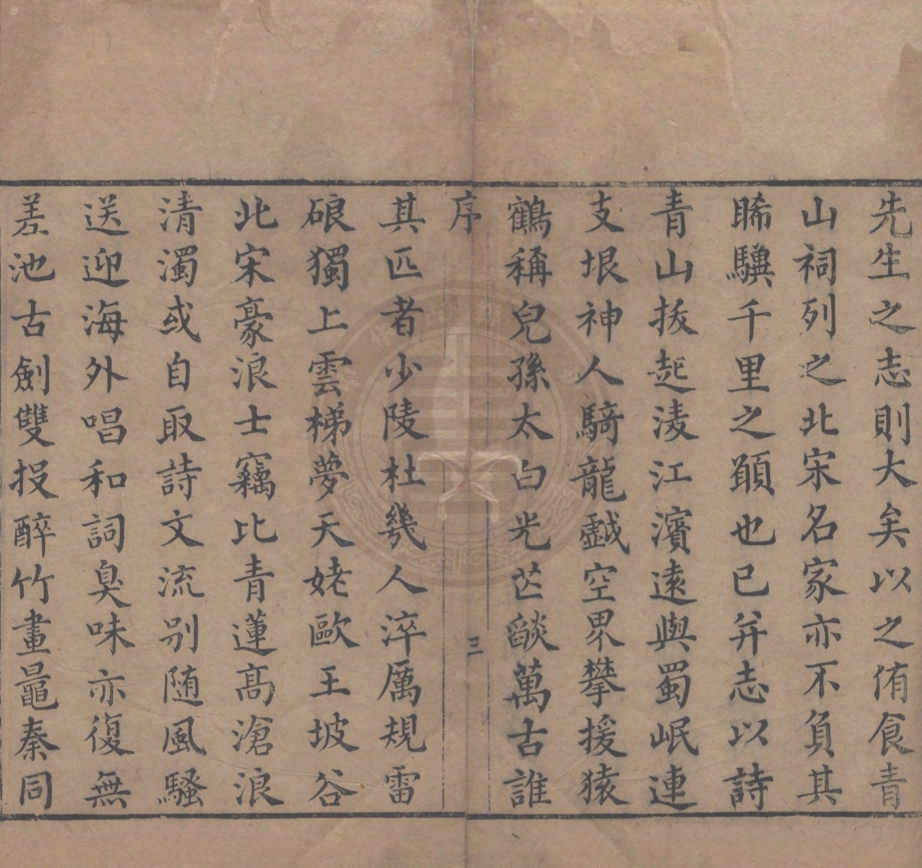 先生之志則大矣以之侑食青
山祠列之北宋名家亦不負其
睎驥千里之顚也已幷志以詩
青山拔起淩江濱遠與蜀岷連
支垠神人騎龍戱空界攀援猿
鶴稱兒孫太白光芒燄萬古誰
序
三
其匹者少陵杜幾人淬厲規雷
硠獨上雲梯夢天姥歐王坡谷
北宋豪浪士竊比青蓮高滄浪
清濁或自取詩文流別随風騷
送迎海外唱和詞臭味亦復無
差池古劍雙投醉竹畫鼂秦同